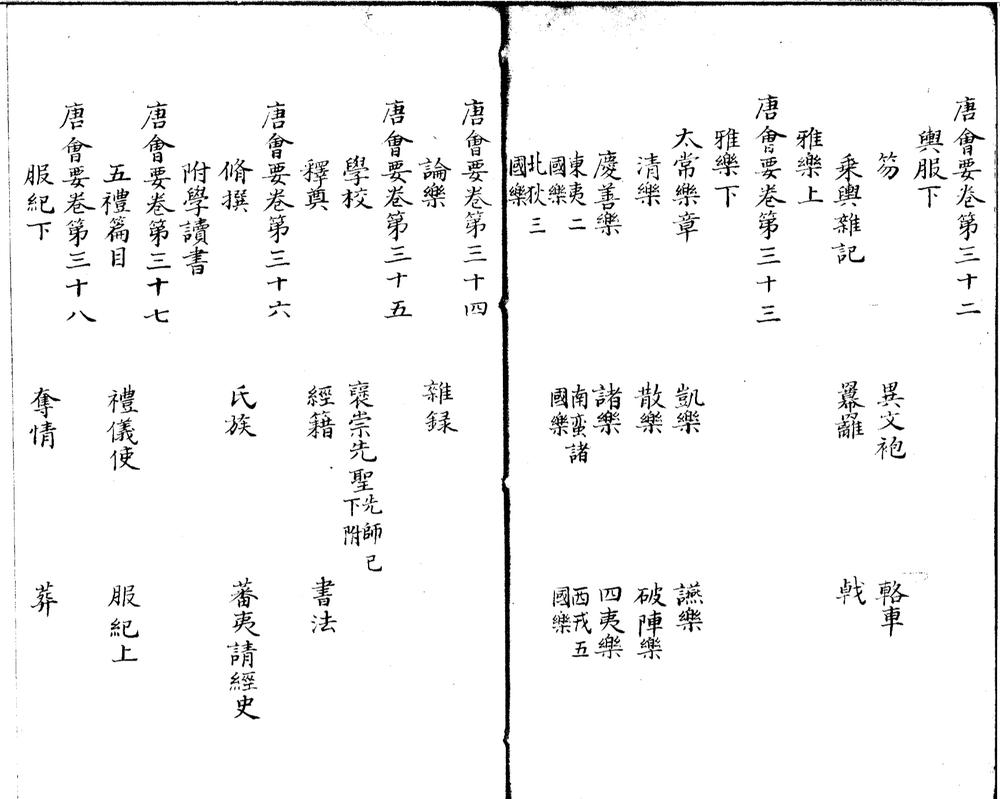 唐會要卷第三十二
輿服下
笏 異文袍 輅車
乗輿雜記 羃䍦 戟
雅樂上
唐會要卷第三十三
雅樂下
太常樂章 凱樂 讌樂
清樂 散樂 破陣樂
慶善樂 諸樂 四夷樂
東夷二國樂 南蠻諸國樂 西戎五國樂
北狄三國樂
唐會要卷第三十四
論樂 雜録
唐會要卷第三十五
學校 襃崇先聖先師已下附
釋奠 經籍 書法
唐會要卷第三十六
脩撰 氏族 蕃夷請經史
附學讀書
唐會要卷第三十七
五禮篇目 禮儀使 服紀上
唐會要卷第三十八
服紀下 奪情 葬